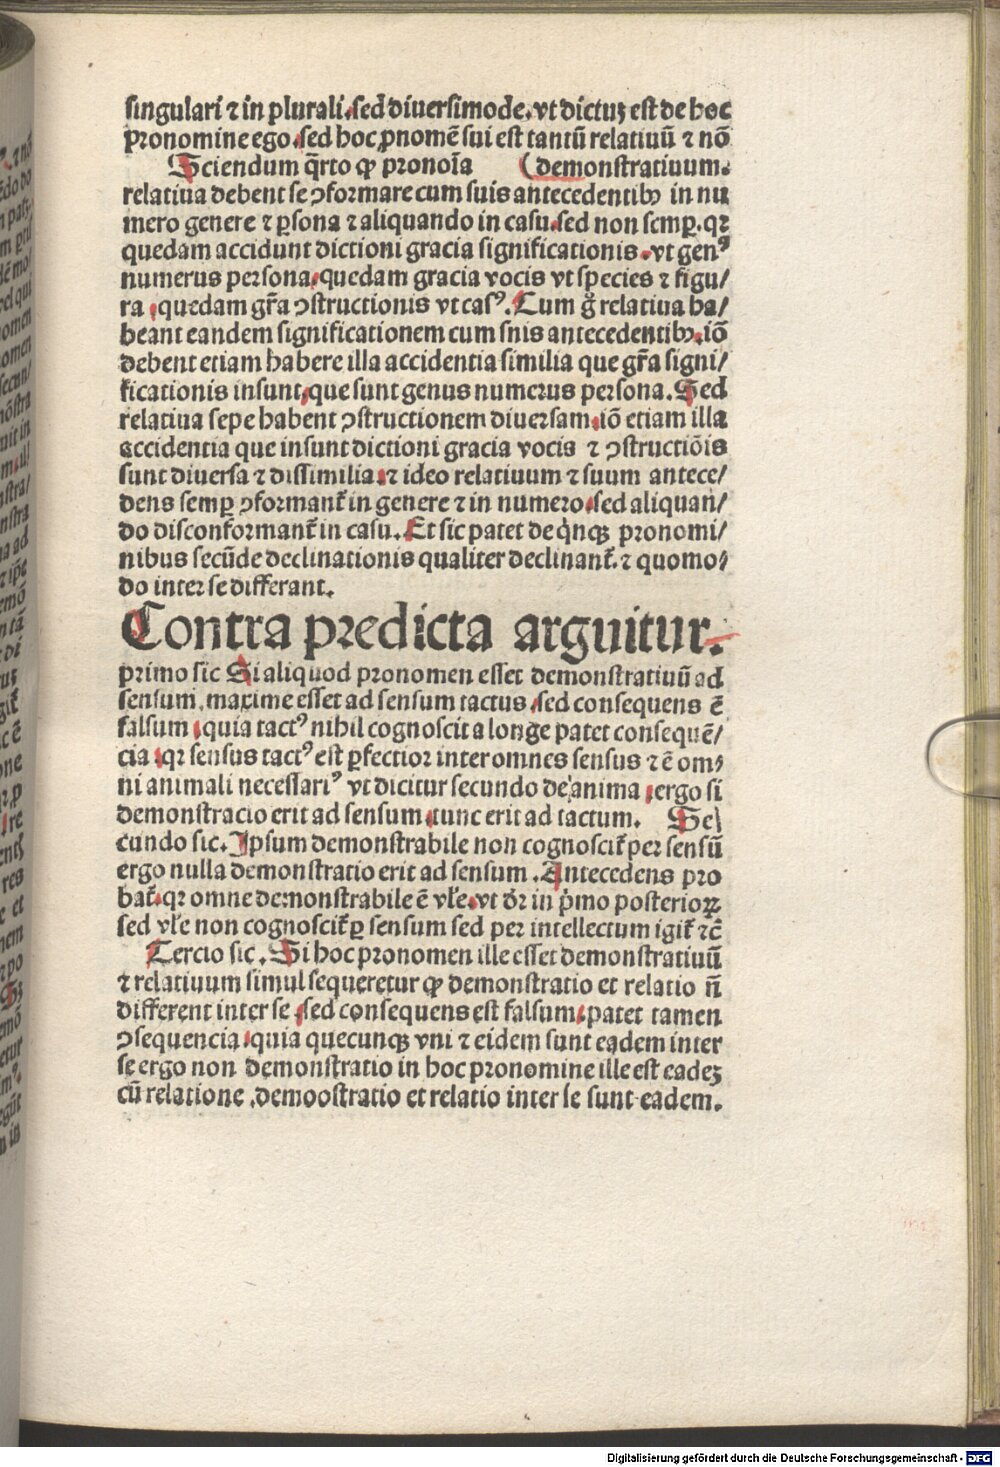 singulari ⁊ in plurali. sed diuersimode. vt dictuꝫ est de hoc
pronomine ego. sed hoc ꝓnomē sui est tantū relatiuū ⁊ nō
Sciendum q̄rto ꝙ pronoīa (demonstratiuum.
relatiua debent se ꝯformare cum suis antecedentibꝰ in nu
mero genere ⁊ ꝑsona ⁊ aliquando in casu. sed non semꝑ. qꝛ
quedam accidunt dictioni gracia significationis. vt genꝰ
numerus persona. quedam gracia vocis vt species ⁊ figu/
ra. quedam gr̄a ꝯstructionis vt casꝰ. Cum g̊ relatiua ha/
beant eandem significationem cum snis antecedentibꝰ. iō
debent etiam habere illa accidentia similia que gr̄a signi/
ficationis insunt. que sunt genus numerus persona. Sed
relatiua sepe habent ꝯstructionem diuersam. iō etiam illa
accidentia que insunt dictioni gracia vocis ⁊ ꝯstructiōis
sunt diuersa ⁊ dissimilia. ⁊ ideo relatiuum ⁊ suum antece/
dens semꝑ ꝯformant̄ in genere ⁊ in numero. sed aliquan/
do disconformant̄ in casu. Et sic patet de qͥnqꝫ pronomi/
nibus secūde declinationis qualiter declinant̄. ⁊ quomo/
do inter se differant.
Contra predicta arguitur.
primo sic Si aliquod pronomen esset demonstratiuū ad
sensum. maxime esset ad sensum tactus. sed consequens ē
falsum. quia tactꝰ nihil cognoscit a longe patet consequē/
cia. qꝛ sensus tactꝰ est ꝑfectior inter omnes sensus ⁊ ē om/
ni animali necessariꝰ vt dicitur secundo de anima. ergo si
demonstracio erit ad sensum. tunc erit ad tactum. Se/
cundo sic. Ipsum demonstrabile non cognoscit̄ per sensū
ergo nulla demonstratio erit ad sensum. Antecedens pro
bat̄. qꝛ omne demonstrabile ē vl̄e. vt dr̄ in pͥmo posterioꝝ
sed vl̄e non cognoscit̄ ꝑ sensum sed per intellectum igit̄ ⁊c̄
Tercio sic. Si hoc pronomen ille esset demonstratiuū
⁊ relatiuum simul sequeretur ꝙ demonstratio et relatio n̄
different inter se. sed consequens est falsum. patet tamen
ꝯsequencia. quia quecunqꝫ vni ⁊ eidem sunt eadem inter
se ergo non demonstratio in hoc pronomine ille est eadeꝫ
cū relatione. demoostratio et relatio inter se sunt eadem.
Digitalisierung gefördert durch die Deutsche Forschungsgemeinschaft - DFG